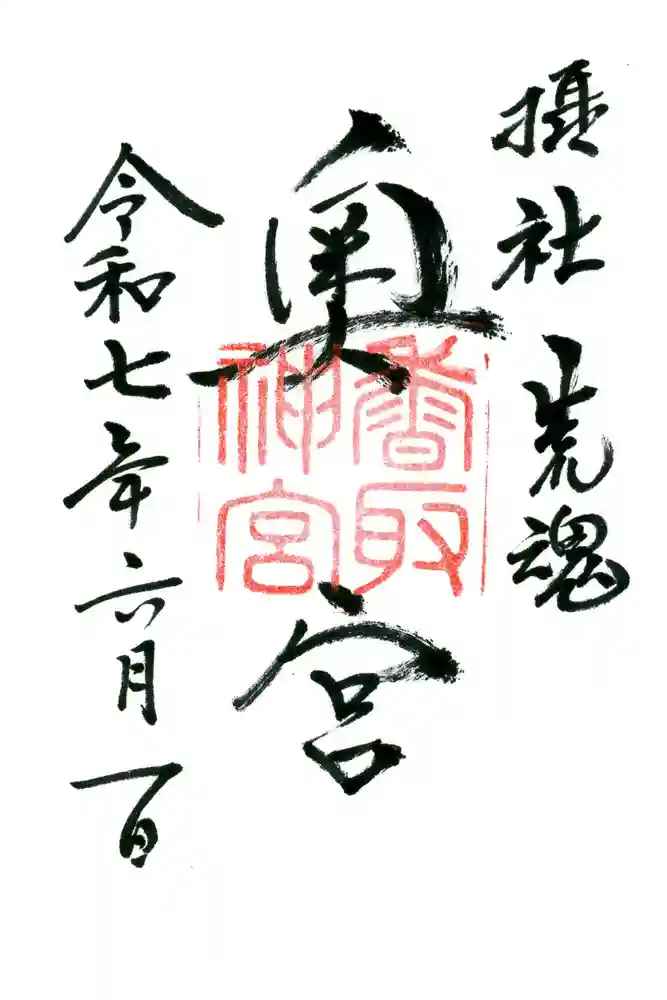 摂社 荒魂
奥宮
香取神宮
令和七年六月一日